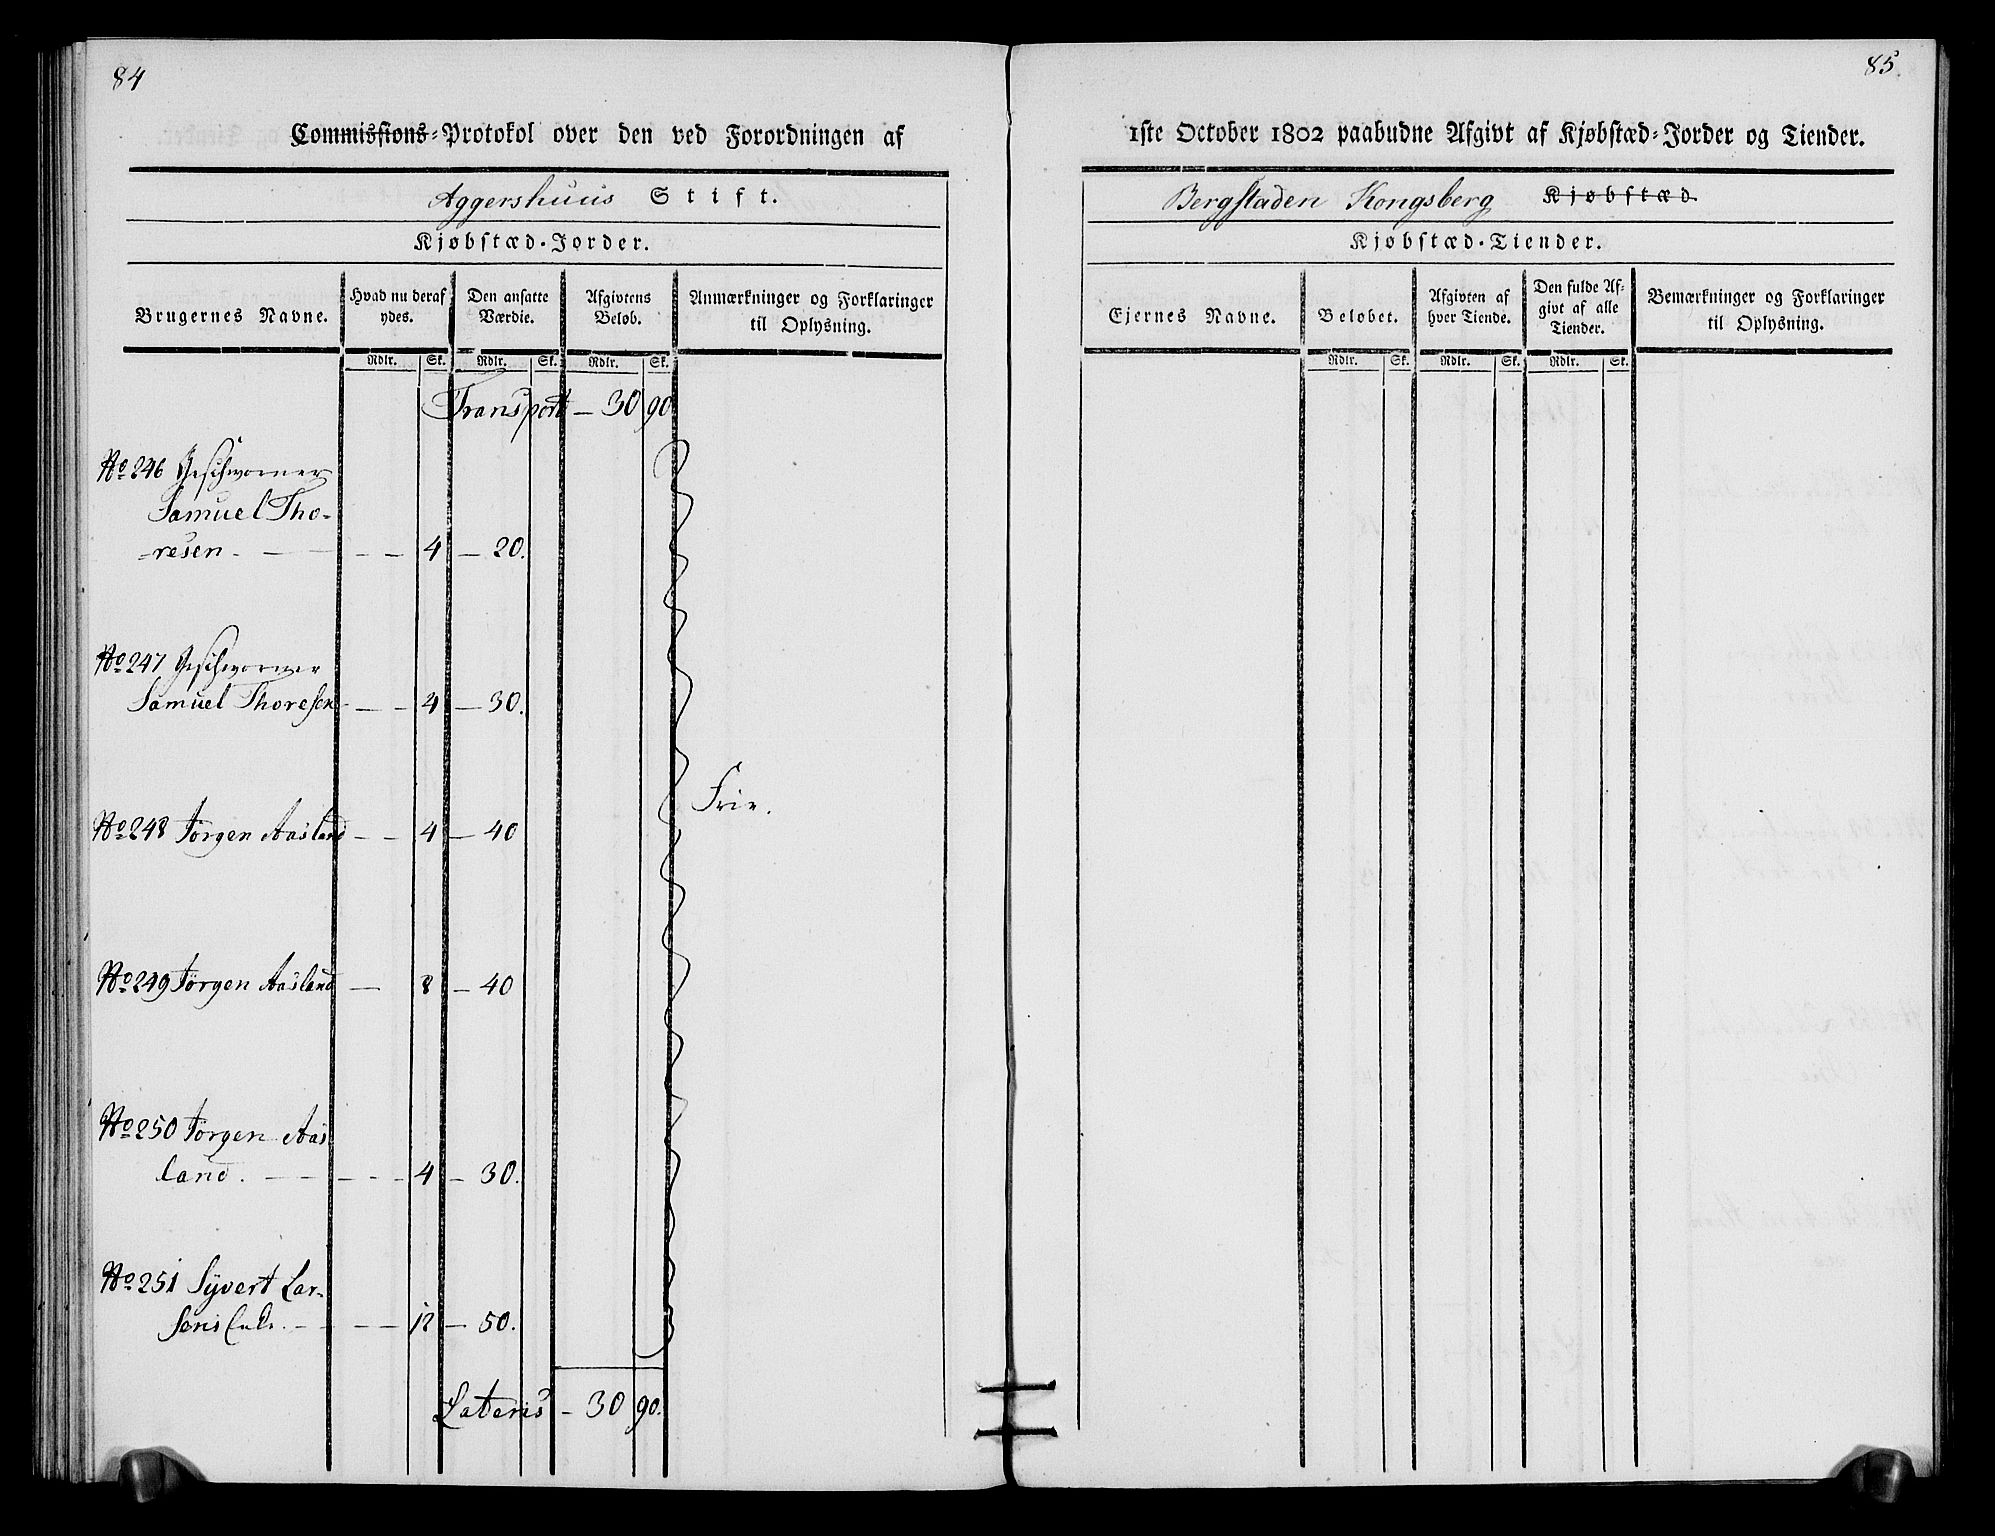 84
Commissions-Protokol over den ved Forordningen af
Aggershuus Stift.
Kjøbstæd-Jorder.
Brugernes Navne.
Hvad nu deraf
ydes.
Den ansatte
Værdie.
Afgivtens
Beløb.
Anmærkninger og Forklaringer
til Oplysning.
Rdlr. Sk. Rdlr. Sk. Rdlr. Sk.
Transport — 30 90
No 246 Geschworner
Samuel Tho-
resen — — 4 — 20.
No 247 Geschworner
Samuel Thoresen — — 4 — 30.
Frie.
No 248 Jørgen Aasland — — 4 — 40
No 249 Jørgen Aasland — 8 — 40
No 250 Jørgen Aas
land. — — 4 — 30.
No 251 Syvert Lar-
sens Enke. — — 12 — 50.
Lateris — 30 90.
85
1ste October 1802 paabudne Afgivt af Kjøbstæd-Jorder og Tiender.
Bergstaden Kongsberg Kjøbstæd
Kjøbstæd-Tiender.
Ejernes Navne.
Beløbet.
Afgivten af
hver Tiende.
Den fulde Af-
givt af alle
Tiender.
Bemærkninger og Forklaringer
til Oplysning.
Rdlr. Sk. Rdlr. Sk. Rdlr. Sk.